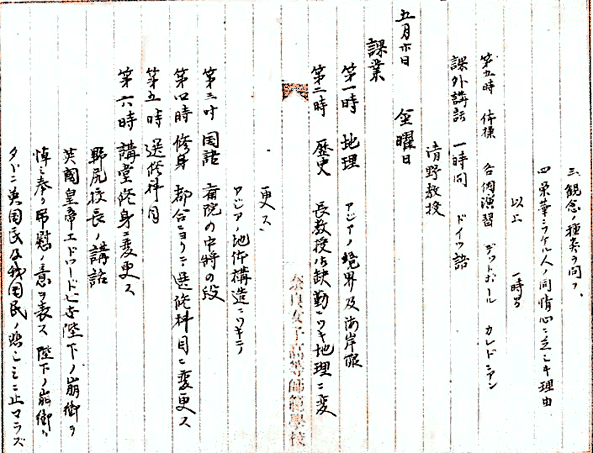 三、観念ノ種類ヲ問フ、
四 栄華ニフケル人ノ同情心ニ乏シキ理由
以上 一時間
第五時 体操 各個演習 デットボール カレドニアン
課外講話 一時間 ドイツ語
清野教授
五月六日 金曜日
課業
第一時 地理 アジアノ境界及海岸線
第二時 歴史 長教授御欠勤ニツキ地理ニ変
奈良女子高等師範學校
更ス、
アジアノ地体構造ニツキテ
第三時 国語 斎院の中将の段
第四時 修身 都合ニヨリテ選修科目ニ変更ス
第五時 選修科目
第六時 講堂修身ニ変更ス
野尻校長ノ講話
英国皇帝エドワード七世陛下ノ崩御ヲ
悼ミ奉リ弔慰ノ意ヲ表ス 陛下ノ崩御ハ
タダニ英国民及我国民ノ悲シミニ止マラズ